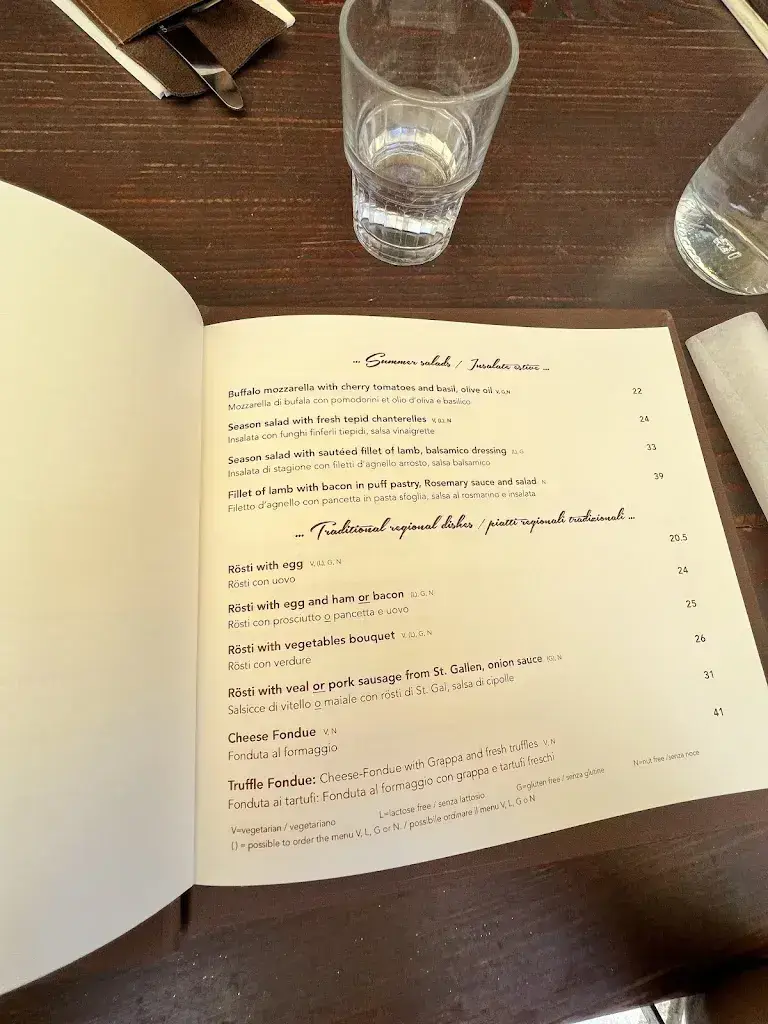 ... Summer salads / Insalate estive ...
Buffalo mozzarella with cherry tomatoes and basil, olive oil V, G, N 22
Mozzarella di bufala con pomodorini et olio d'oliva e basilico
Season salad with fresh tepid chanterelles V, (L), N 24
Insalata con funghi finferli tiepidi, salsa vinaigrette
Season salad with sautéed fillet of lamb, balsamico dressing (L), G 33
Insalata di stagione con filetti d'agnello arrosto, salsa balsamico
Fillet of lamb with bacon in puff pastry, Rosemary sauce and salad N 39
Filetto d'agnello con pancetta in pasta sfoglia, salsa al rosmarino e insalata
... Traditional regional dishes / piatti regionali tradizionali ...
Rösti with egg V, (L), G, N 20.5
Rösti con uovo
Rösti with egg and ham or bacon (L), G, N 24
Rösti con prosciutto o pancetta e uovo
Rösti with vegetables bouquet V, (L), G, N 25
Rösti con verdure
Rösti with veal or pork sausage from St. Gallen, onion sauce (G), N 26
Salsicce di vitello o maiale con rösti di St. Gal, salsa di cipolle
Cheese Fondue V, N 31
Fonduta al formaggio
Truffle Fondue: Cheese-Fondue with Grappa and fresh truffles V, N 41
Fonduta ai tartufi: Fonduta al formaggio con grappa e tartufi freschi
V=vegetarian / vegetariano L=lactose free / senza lattosio G=gluten free / senza glutine N=nut free / senza noce
() = possible to order the menu V, L, G or N. / possibile ordinare il menu V, L, G o N